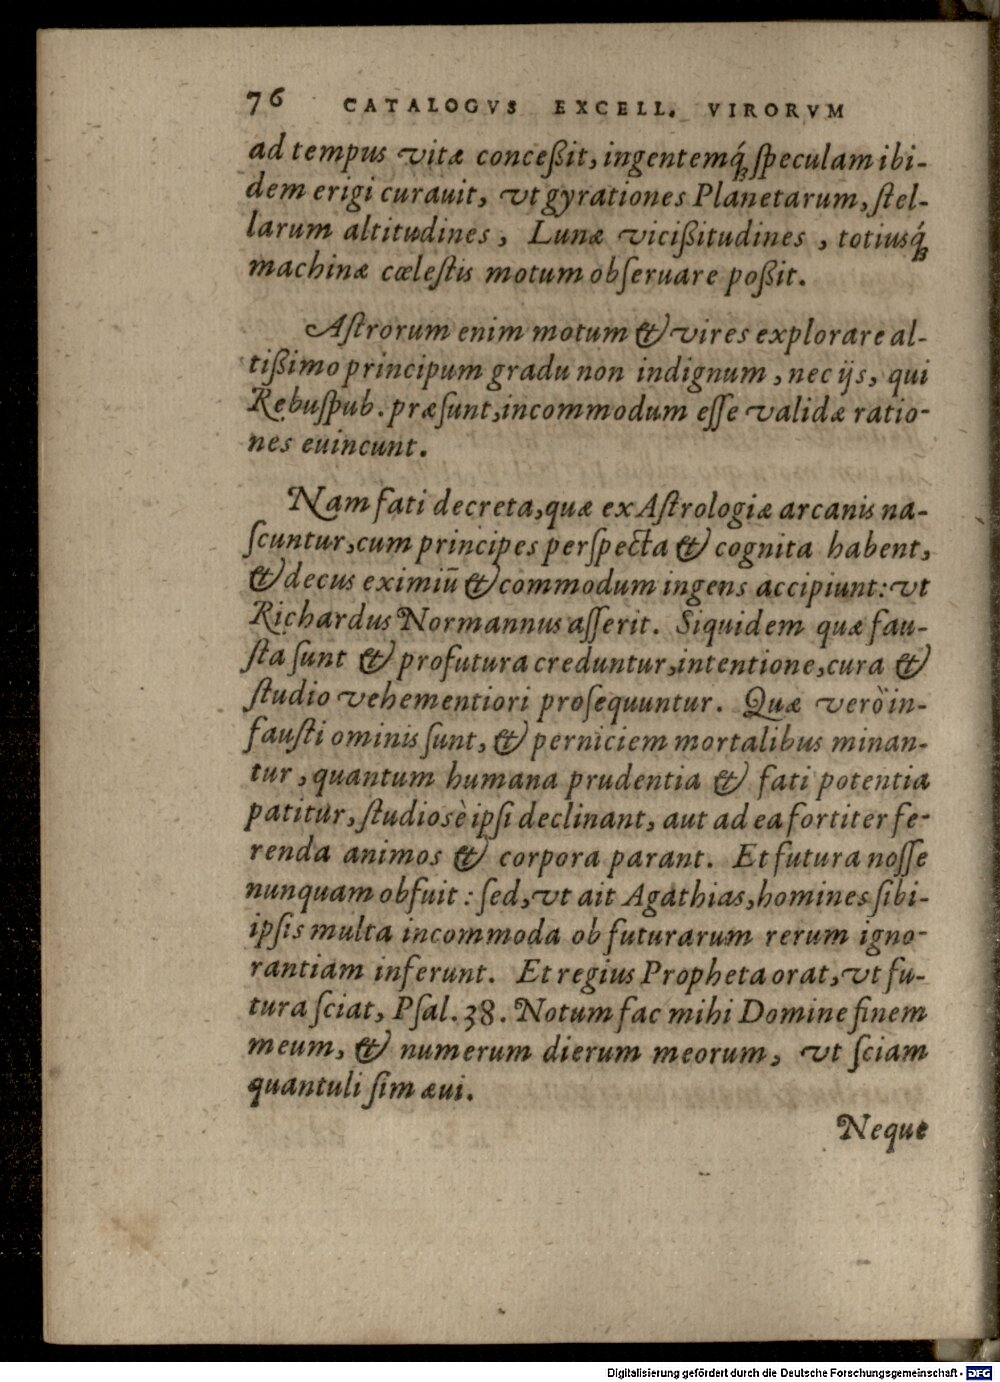 76 CATALOGVS EXCELL. VIRORVM
ad tempus vitæ conceßit, ingentemq́ꝫ ſpeculam ibi-
dem erigi curauit, vt gyrationes Planetarum, ſtel-
larum altitudines, Lunæ vicißitudines, totiusq́ꝫ
machinæ cœleſtis motum obſeruare poßit.
Aſtrorum enim motum & vires explorare al-
tißimo principum gradu non indignum, nec ijs, qui
Rebuſpub. præſunt, incommodum eſſe validæ ratio-
nes euincunt.
Nam fati decreta, quæ ex Aſtrologiæ arcanis na-
ſcuntur, cum principes perſpecta & cognita habent,
& decus eximiū & commodum ingens accipiunt: vt
Richardus Normannus aſſerit. Siquidem quæ fau-
ſta ſunt & profutura creduntur, intentione, cura &
ſtudio vehementiori proſequuntur. Quæ verò in-
fauſti ominis ſunt, & perniciem mortalibus minan-
tur, quantum humana prudentia & fati potentia
patitur, ſtudiosè ipſi declinant, aut ad ea fortiter fe-
renda animos & corpora parant. Et futura noſſe
nunquam obfuit: ſed, vt ait Agathias, homines ſibi-
ipſis multa incommoda ob futurarum rerum igno-
rantiam inferunt. Et regius Propheta orat, vt fu-
tura ſciat, Pſal. 38. Notum fac mihi Domine finem
meum, & numerum dierum meorum, vt ſciam
quantuli ſim æui.
Neque
Digitalisierung gefördert durch die Deutsche Forschungsgemeinschaft - DFG